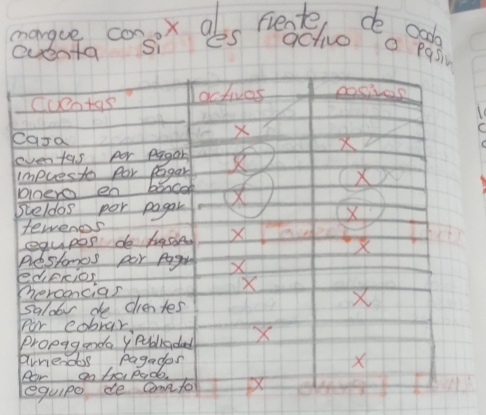 marque con x al frente de cada
cuenta si es activo o pasivo
Cuentas activos pasivos
caja x
cuentas por pagar x
impuesto por pagar x
Dinero en bancos x
Sueldos por pagar x
terrenos x
equipos de
Préstamos por pagar x
edificios x
mercancias x
saldos de clientes x
Por cobrar
Propaganda y Publicidad x
pagados
Por anticipado x
equipo de x